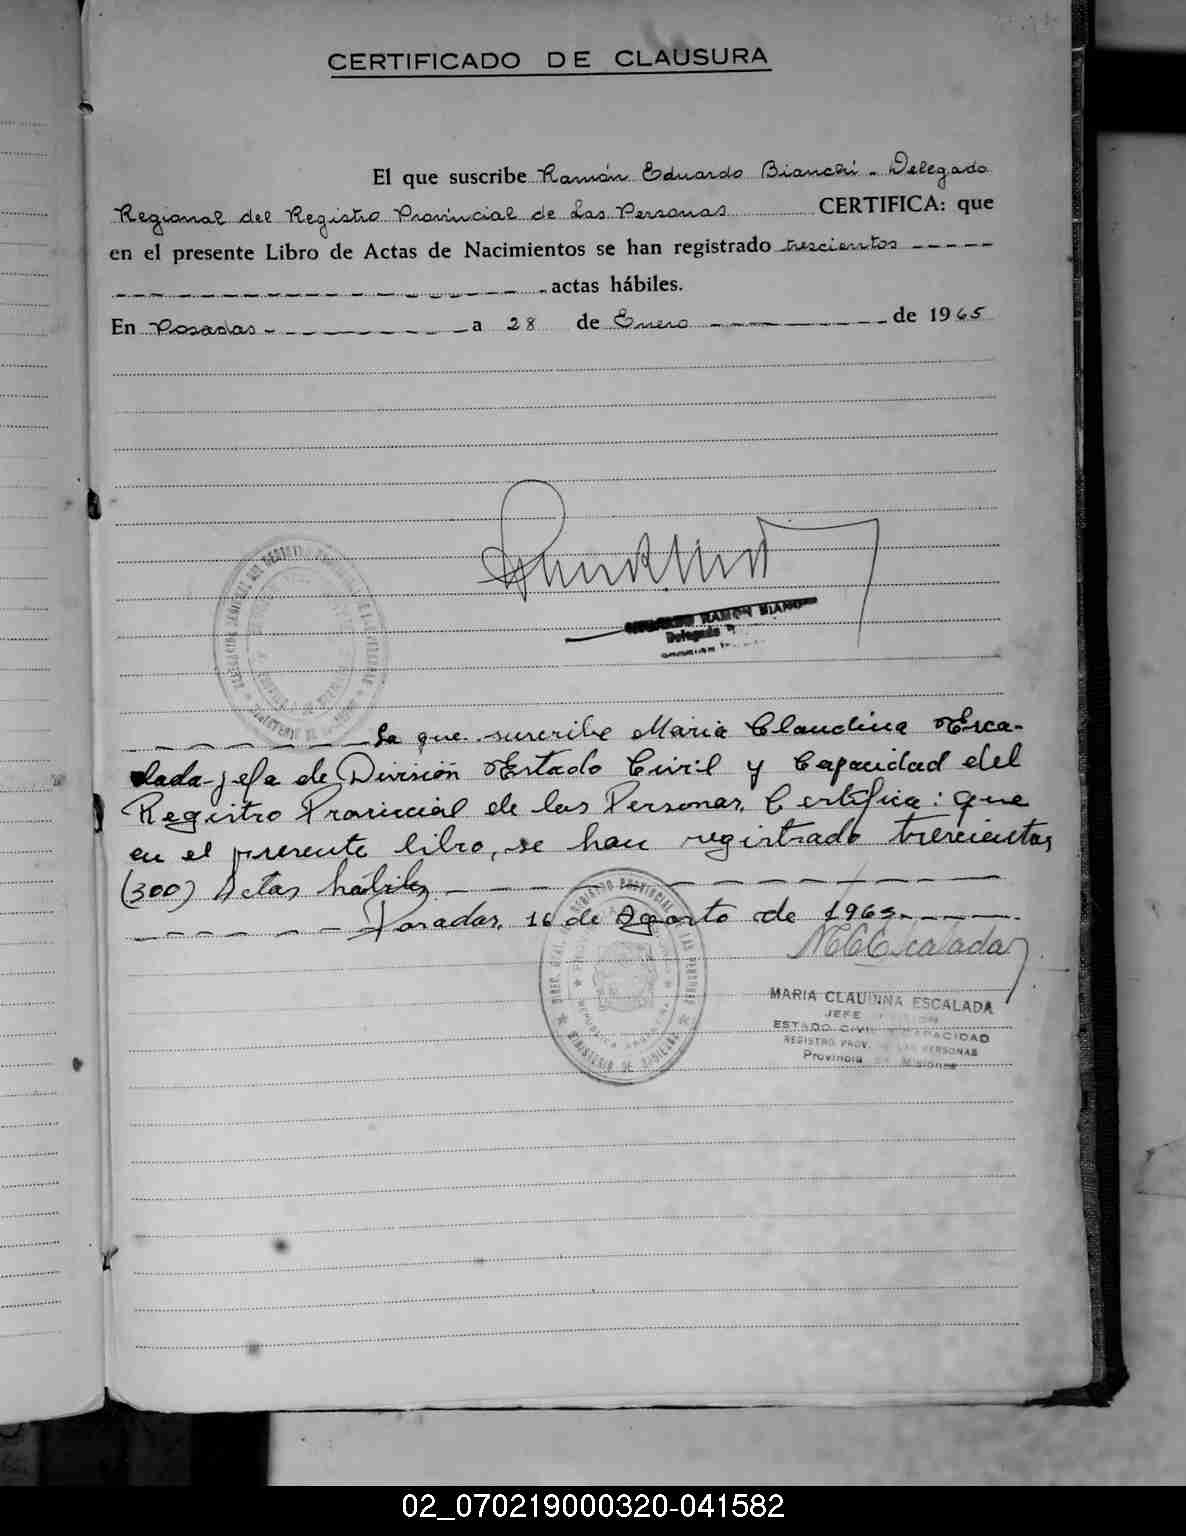 CERTIFICADO DE CLAUSURA
El que suscribe Ramón Eduardo Bianchi - Delegado
Regional del Registro Provincial de Las Personas CERTIFICA: que
en el presente Libro de Actas de Nacimientos se han registrado trescientos
actas hábiles.
En Posadas a 28 de Enero de 1965
RAMON BIANC
Delegado
La que suscribe Maria Claudina Esca-
lada - jefa de División Estado Civil y Capacidad del
Registro Provincial de las Personas, Certifica: que
en el presente libro, se han registrado trescientas
(300) Actas hábiles
Posadas, 16 de Agosto de 1965
MCEscalada
MARIA CLAUDINA ESCALADA
JEFE DIVISION
ESTADO CIVIL Y CAPACIDAD
REGISTRO PROV. DE LAS PERSONAS
Provincia de Misiones
02_070219000320-041582